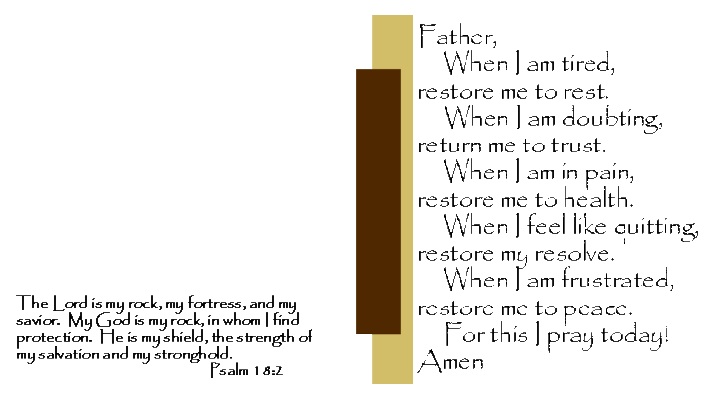 Father,
When I am tired,
restore me to rest.
When I am doubting,
return me to trust.
When I am in pain,
restore me to health.
When I feel like quitting,
restore my resolve.
When I am frustrated,
restore me to peace.
For this I pray today!
Amen
The Lord is my rock, my fortress, and my
savior. My God is my rock, in whom I find
protection. He is my shield, the strength of
my salvation and my stronghold.
Psalm 18:2